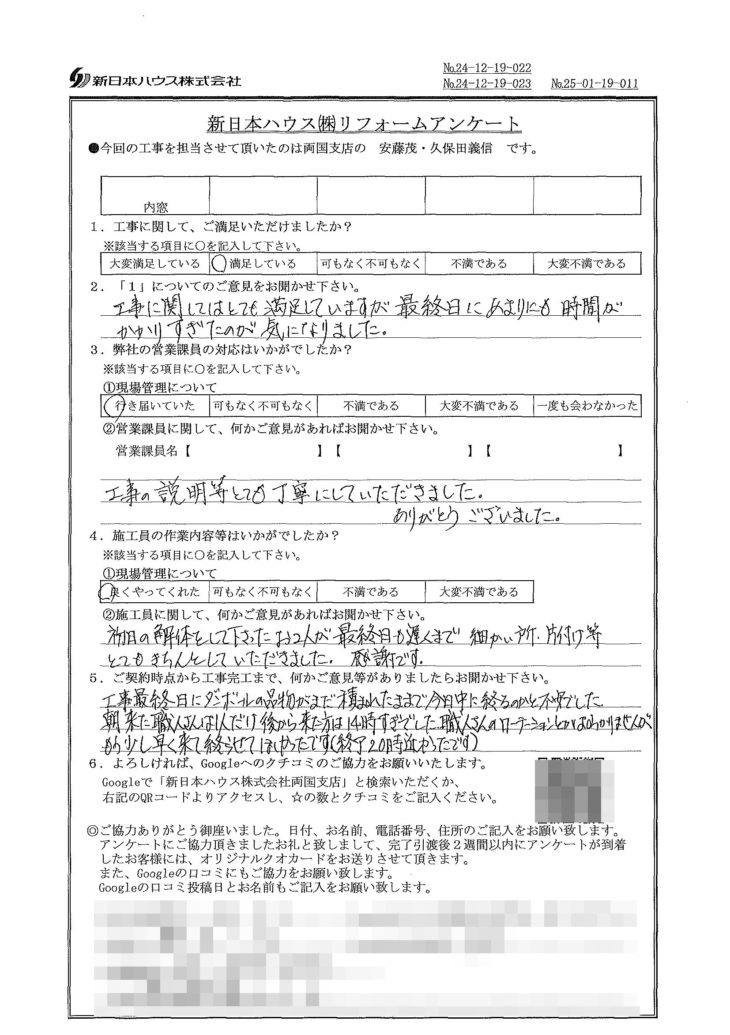 新日本ハウス株式会社
№24-12-19-022
№24-12-19-023 №25-01-19-011
新日本ハウス㈱リフォームアンケート
●今回の工事を担当させて頂いたのは両国支店の 安藤茂・久保田義信 です。
内窓
1．工事に関して、ご満足いただけましたか？
※該当する項目に○を記入して下さい。
大変満足している 満足している 可もなく不可もなく 不満である 大変不満である
2．「1」についてのご意見をお聞かせ下さい。
工事に関してはとても満足していますが最終日にあまりにも時間が
かかりすぎたのが気になりました。
3．弊社の営業課員の対応はいかがでしたか？
※該当する項目に○を記入して下さい。
①現場管理について
行き届いていた 可もなく不可もなく 不満である 大変不満である 一度も会わなかった
②営業課員に関して、何かご意見があればお聞かせ下さい。
営業課員名【 】【 】【 】
工事の説明等とても丁寧にしていただきました。
ありがとうございました。
4．施工員の作業内容等はいかがでしたか？
※該当する項目に○を記入して下さい。
①現場管理について
良くやってくれた 可もなく不可もなく 不満である 大変不満である
②施工員に関して、何かご意見があればお聞かせ下さい。
初日の解体をして下さったお2人が最終日も遅くまで細かい所、片付け等
とてもきちんとしていただきました。感謝です。
5．ご契約時点から工事完工まで、何かご意見等がありましたらお聞かせ下さい。
工事最終日にダンボールの品物がまだ積まれたままで今日中に終るのかと不安でした
朝来た職人さんは1人だけ後から来た方は14時すぎでした職人さんのローテーションとかはわかりませんが
もう少し早く来て終らせてほしかったです(終了20時近かったです)
6．よろしければ、Googleへのクチコミのご協力をお願いいたします。
Googleで「新日本ハウス株式会社両国支店」と検索いただくか、
右記のQRコードよりアクセスし、☆の数とクチコミをご記入ください。
◎ご協力ありがとう御座いました。日付、お名前、電話番号、住所のご記入をお願い致します。
アンケートにご協力頂きましたお礼と致しまして、完了引渡後2週間以内にアンケートが到着
したお客様には、オリジナルクオカードをお送りさせて頂きます。
また、Googleの口コミにもご協力をお願い致します。
Googleの口コミ投稿日とお名前もご記入をお願い致します。